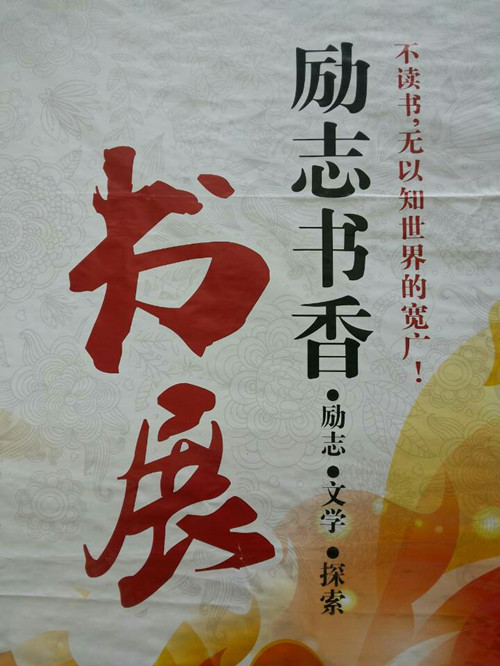 不读书,无以知世界的宽广!
励志书香
•励志•文学•探索
书展